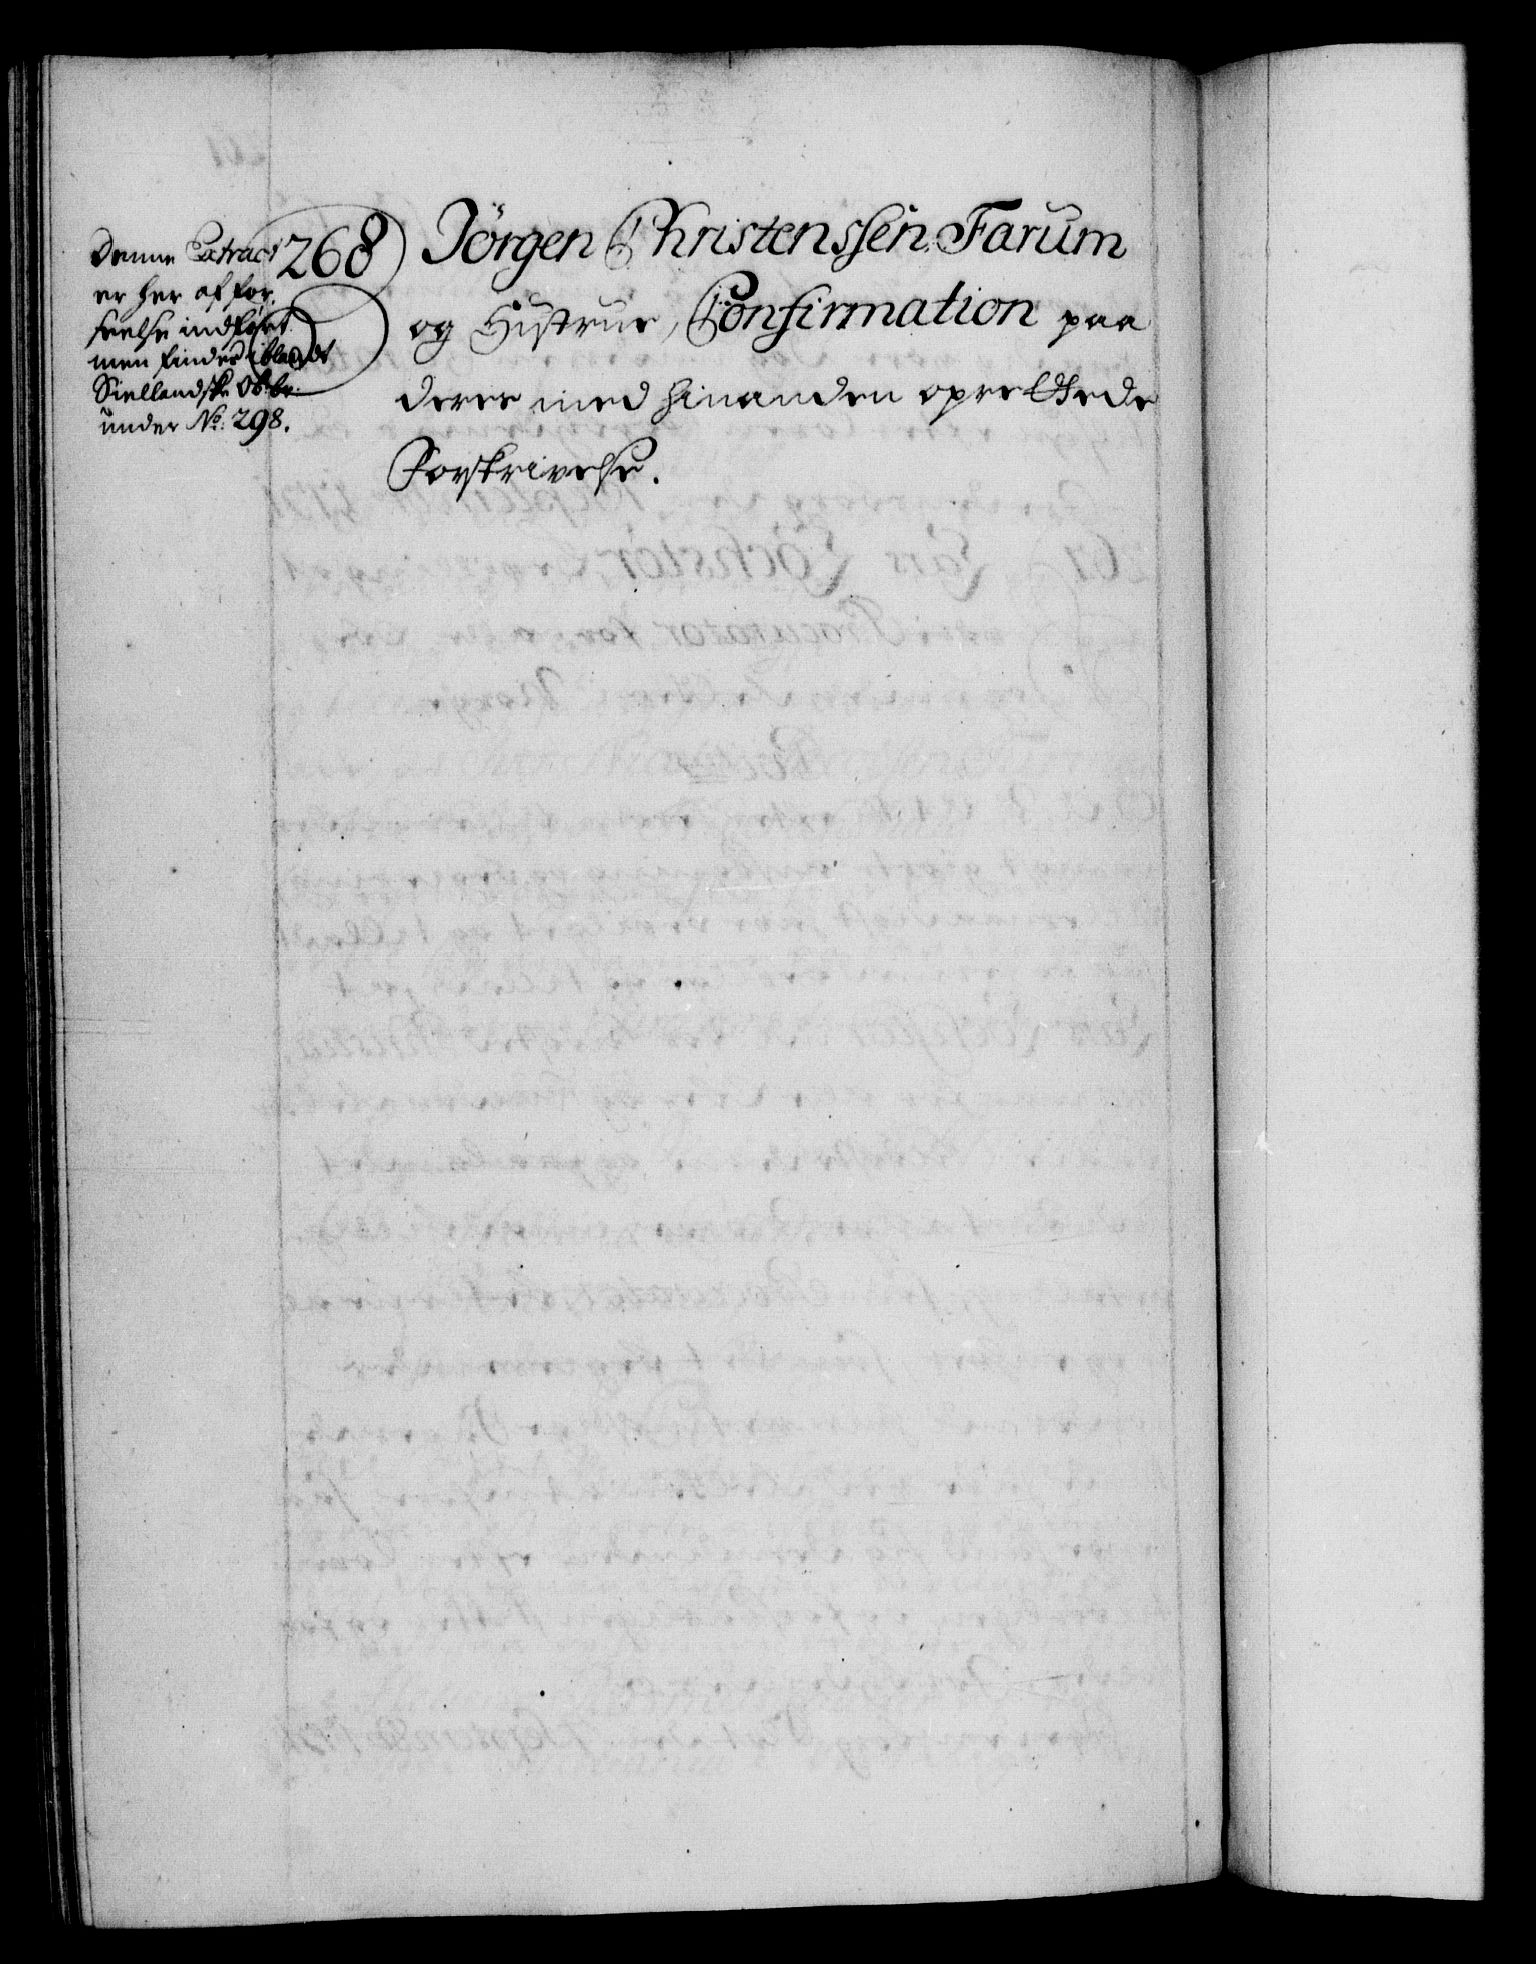 Denne Extract
er her af for¬
seelse indført
men findes iblandt
Siellandske Ob: br:
under No: 298.
268
Jörgen Christenssen Farum
og Hustrue, Confirmation paa
deres med hinanden oprettede
Forskrivelse.